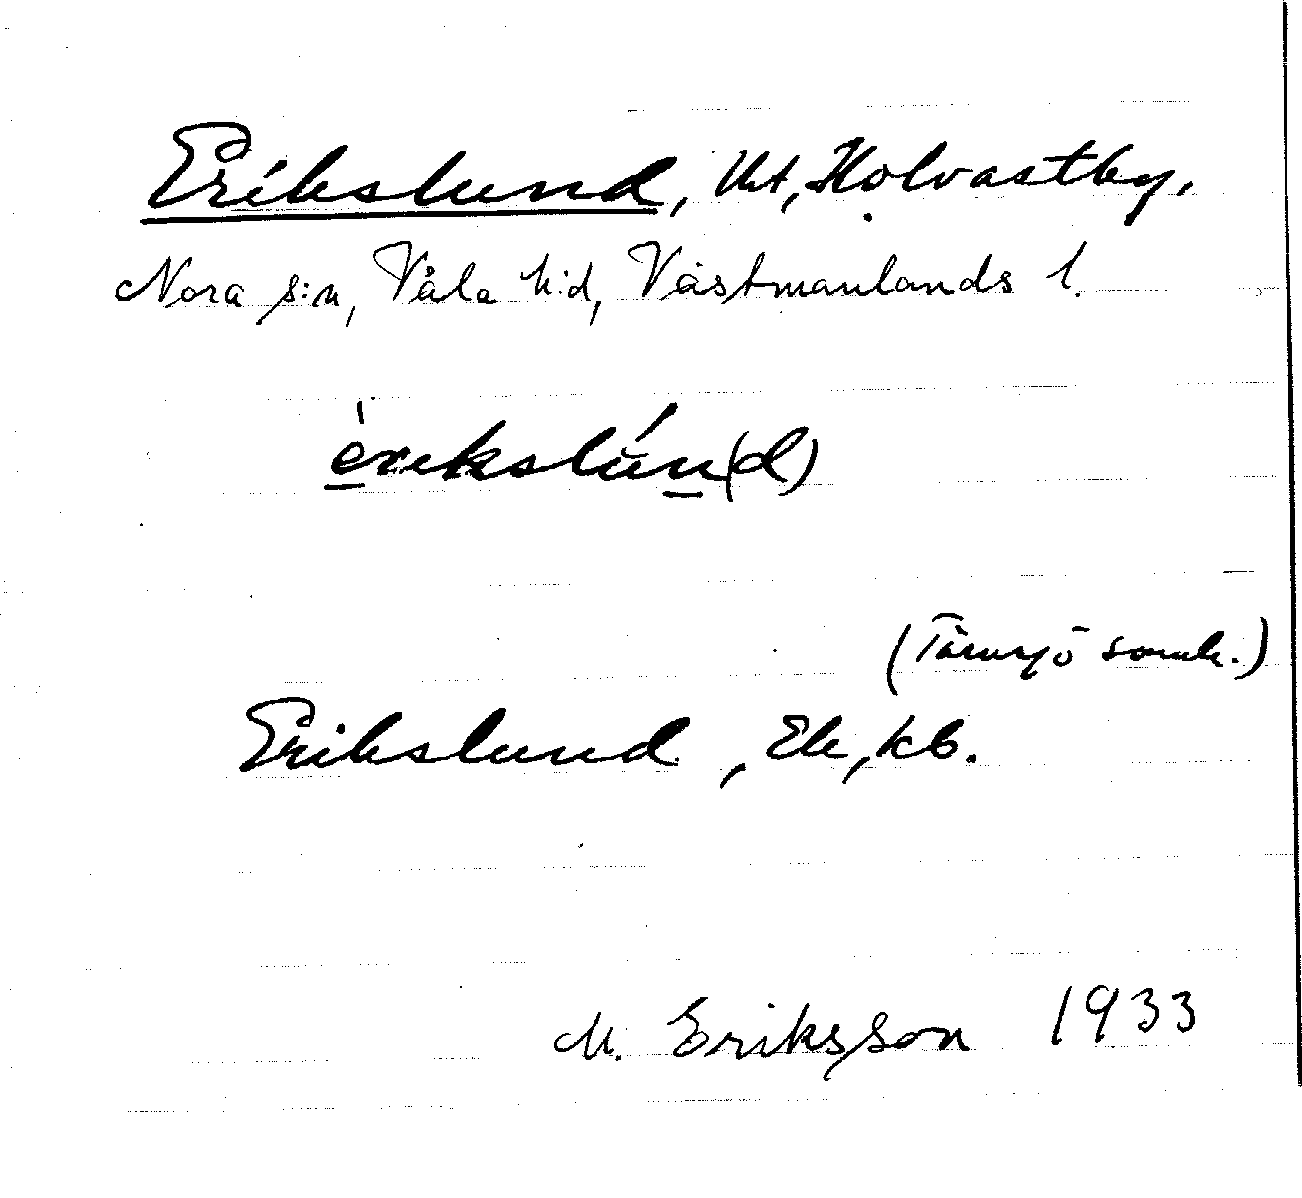 Erikslund, Ut, Holvastby,
Nora s:n, Våla h:d, Västmanlands l.
èrikslún(d)
(Tärnsjö samh.)
Erikslund, Ek, kb.
M. Eriksson 1933